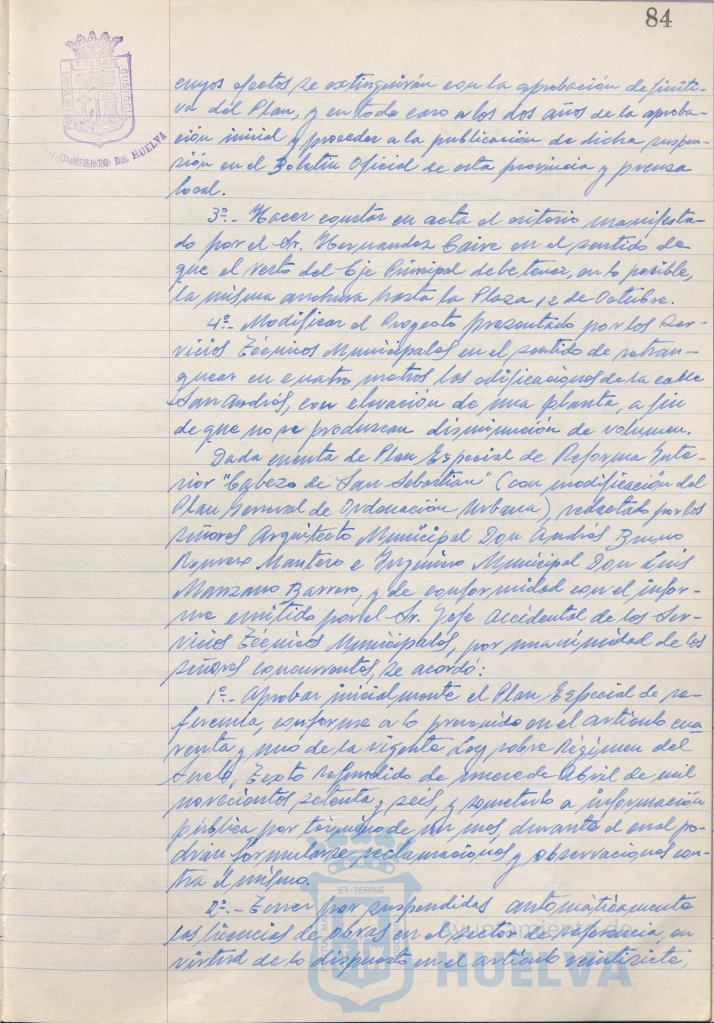 84
ET TERRÆ
CUSTODIA
AYUNTAMIENTO DE HUELVA
cuyos efectos se extinguirán con la aprobación definiti-
va del Plan, y en todo caso a los dos años de la aproba-
ción inicial y proceder a la publicación de dicha suspen-
sión en el Boletín Oficial de esta provincia y prensa
local.
3º.- Hacer constar en acta el criterio manifesta-
do por el Sr. Hernandez Caire en el sentido de
que el resto del Eje Principal debe tener, en lo posible,
la misma anchura hasta la Plaza 12 de Octubre.
4º.- Modificar el Proyecto presentado por los Ser-
vicios Técnicos Municipales en el sentido de retran-
quear en cuatro metros las edificaciones de la calle
San Andrés, con elevación de una planta, a fin
de que no se produzcan disminución de volumen.
Dada cuenta de Plan Especial de Reforma Inte-
rior "Cabezo de San Sebastian" (con modificación del
Plan General de Ordenación Urbana), redactado por los
señores Arquitecto Municipal Don Andrés Bruno
Romero Mantero e Ingeniero Municipal Don Luis
Manzano Barrero, y de conformidad con el infor-
me emitido por el Sr. Jefe Accidental de los Ser-
vicios Técnicos Municipales, por unanimidad de los
señores concurrentes, se acordó:
1º.- Aprobar inicialmente el Plan Especial de re-
ferencia, conforme a lo prevenido en el artículo cua-
renta y uno de la vigente Ley sobre Régimen del
Suelo, Texto Refundido de nueve de Abril de mil
novecientos setenta y seis, y someterlo a información
pública por término de un mes, durante el cual po-
drán formularse reclamaciones y observaciones con-
tra el mismo.
2º.- Tener por suspendidas automáticamente
las licencias de obras en el sector de referencia, en
virtud de lo dispuesto en el artículo veintisiete,
ET TERRÆ
Ayuntamiento de
HUELVA